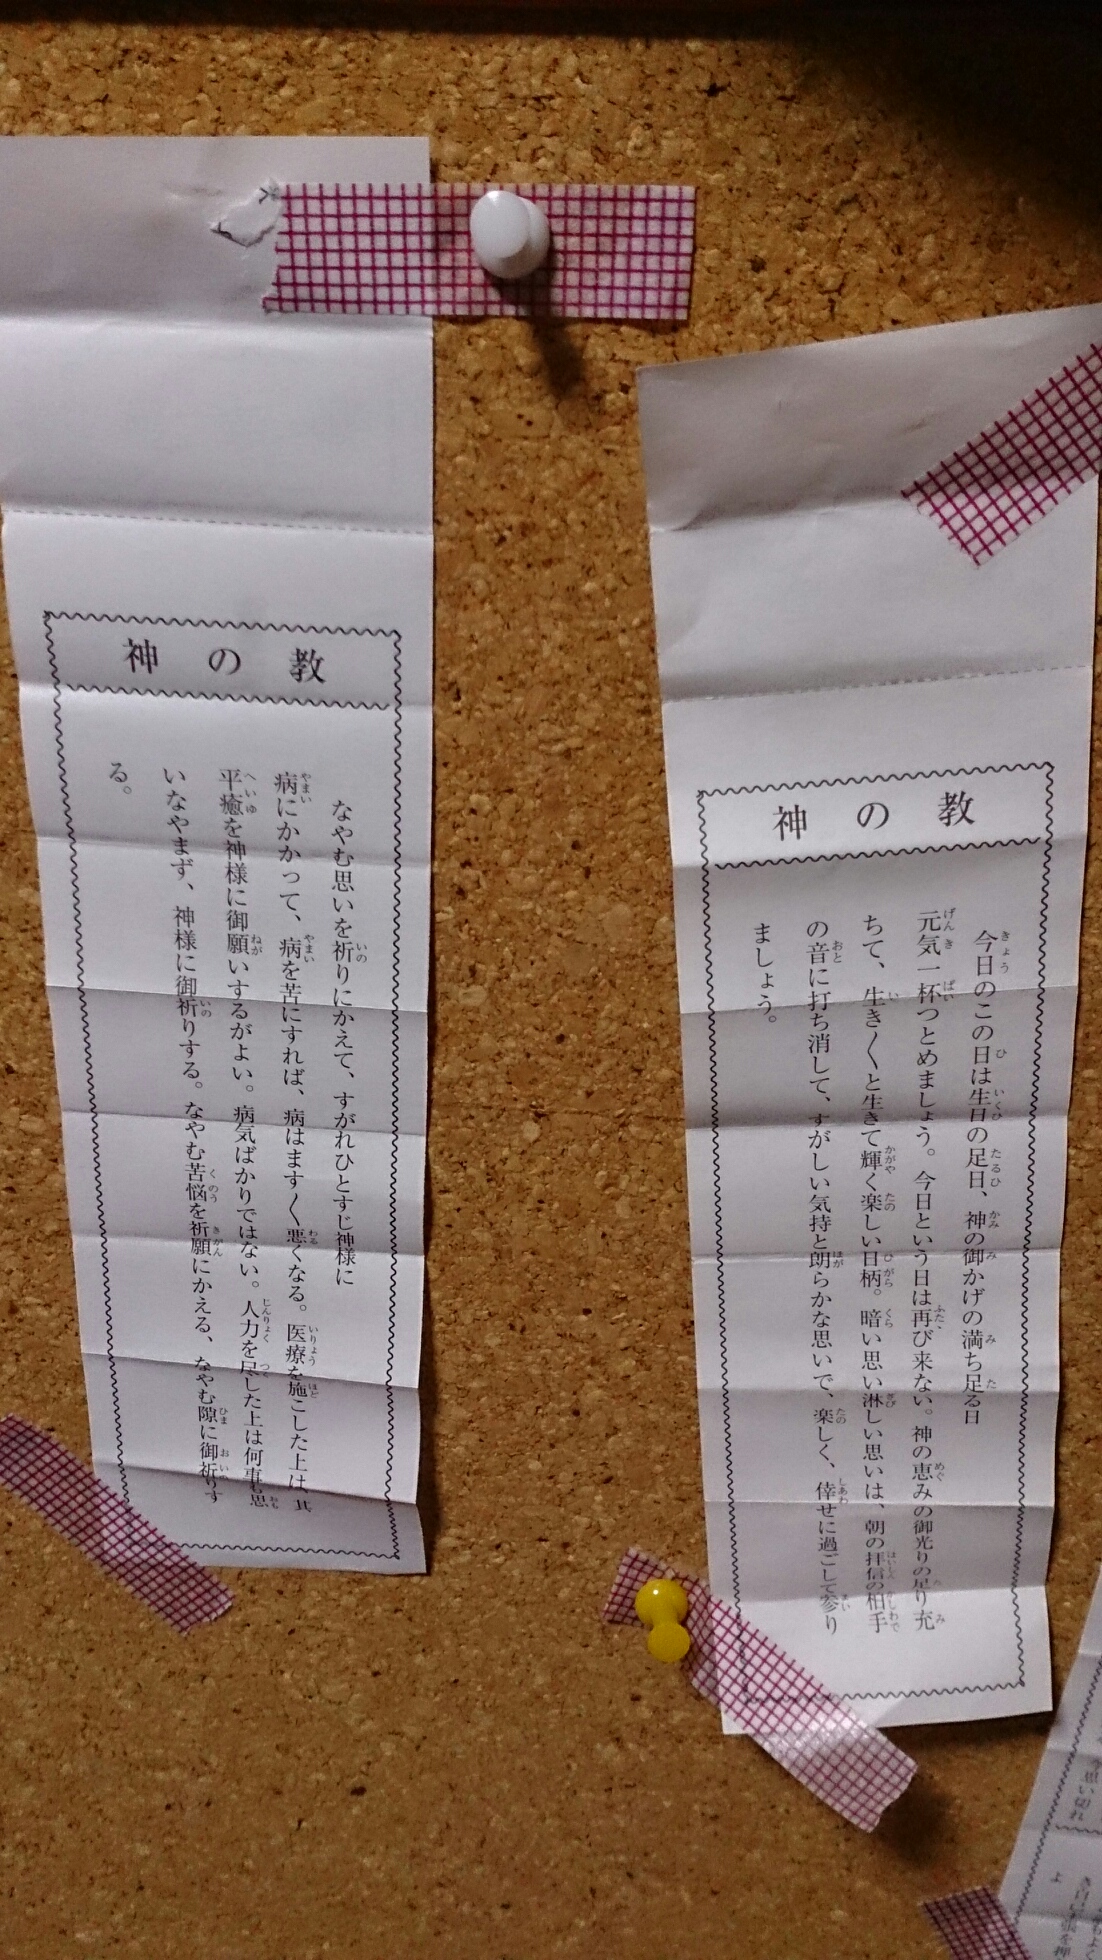 神の教
今日のこの日は生日の足日、神の御かげの満ち足る日
元気一杯つとめましょう。今日という日は再び来ない。神の恵みの御光りの足り充
ちて、生き〱と生きて輝く楽しい日柄。暗い思い淋しい思いは、朝の拝信の柏手
の音に打ち消して、すがしい気持と朗らかな思いで、楽しく、倖せに過ごして参り
ましょう。
神の教
なやむ思いを祈りにかえて、すがれひとすじ神様に
病にかかって、病を苦にすれば、病はます〱悪くなる。医療を施こした上は、其
平癒を神様に御願いするがよい。病気ばかりではない。人力を尽した上は何事も思
いなやまず、神様に御祈りする。なやむ苦悩を祈願にかえる、なやむ隙に御祈りす
る。